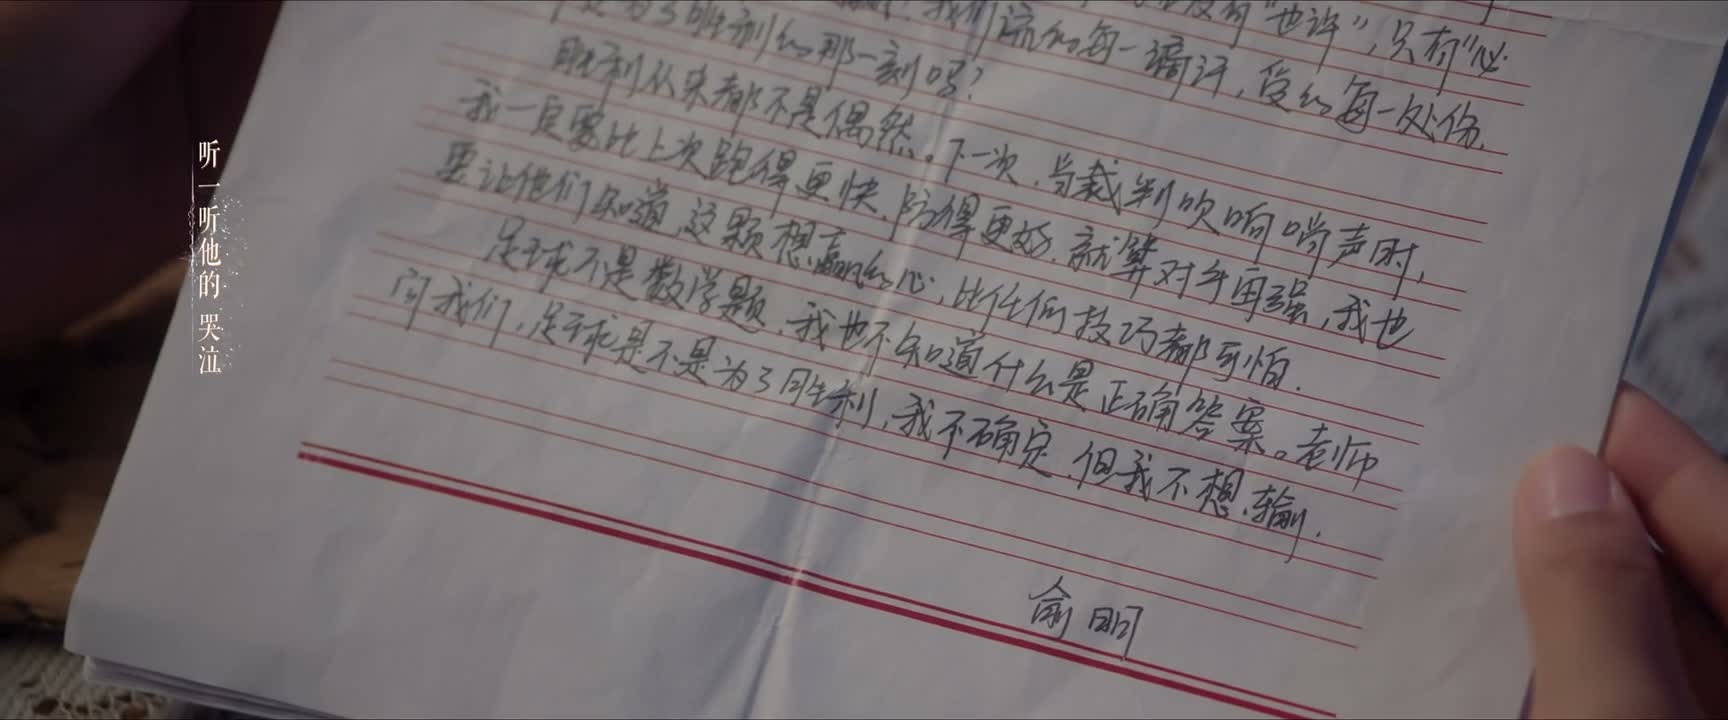 我们流的每一滴汗，受的每一处伤，
"也许"，只有"必
为了胜利的那一刻吗？
胜利从来都不是偶然。下一次，当裁判吹响哨声时，
我一定要比上次跑得更快，防得更好，就算对手再强，我也
要让他们知道，这颗想赢的心，比任何技巧都可怕。
足球不是数学题，我也不知道什么是正确答案。老师
问我们，足球是不是为了胜利，我不确定，但我不想输。
俞明
听一听他的 哭泣